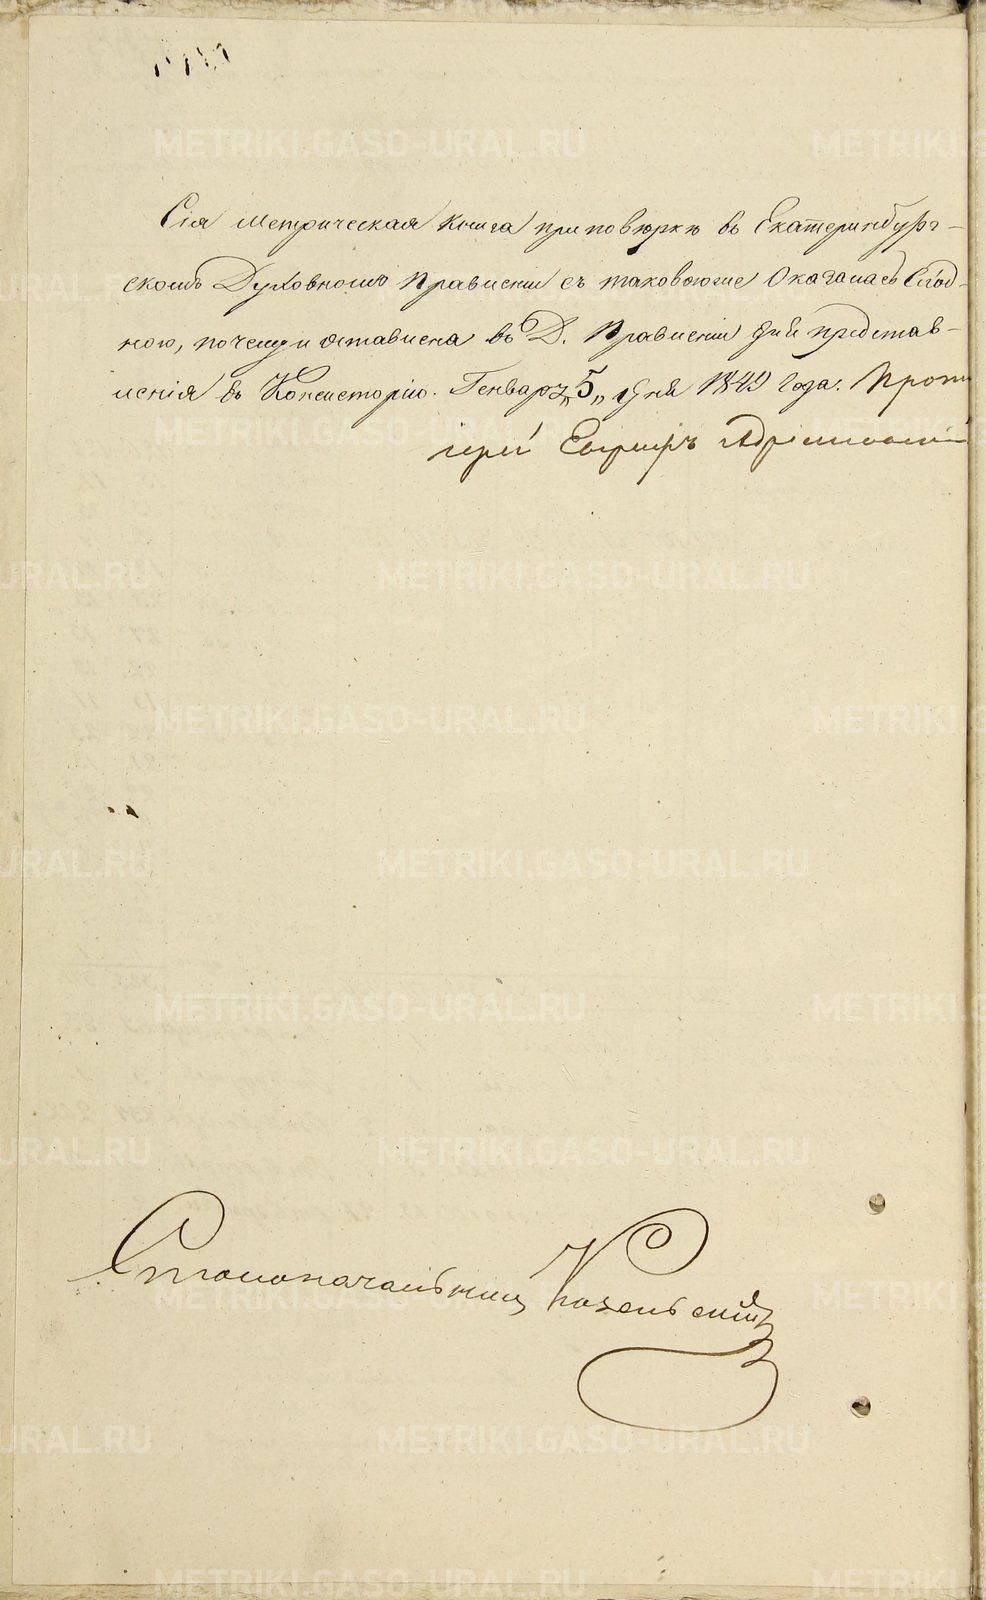 Сія Метрическая Книга при повѣркѣ въ Екатеринбург-
скомъ Духовномъ Правленіи съ таковоюже Оказалась Сход-
ною, почему и оставлена въ Д. Правленіи для представ-
ленія въ Консисторію. Генваря „5„ дня 1849 года. Прото
іерей
Столоначальникъ
METRIKI.GASO-URAL.RU